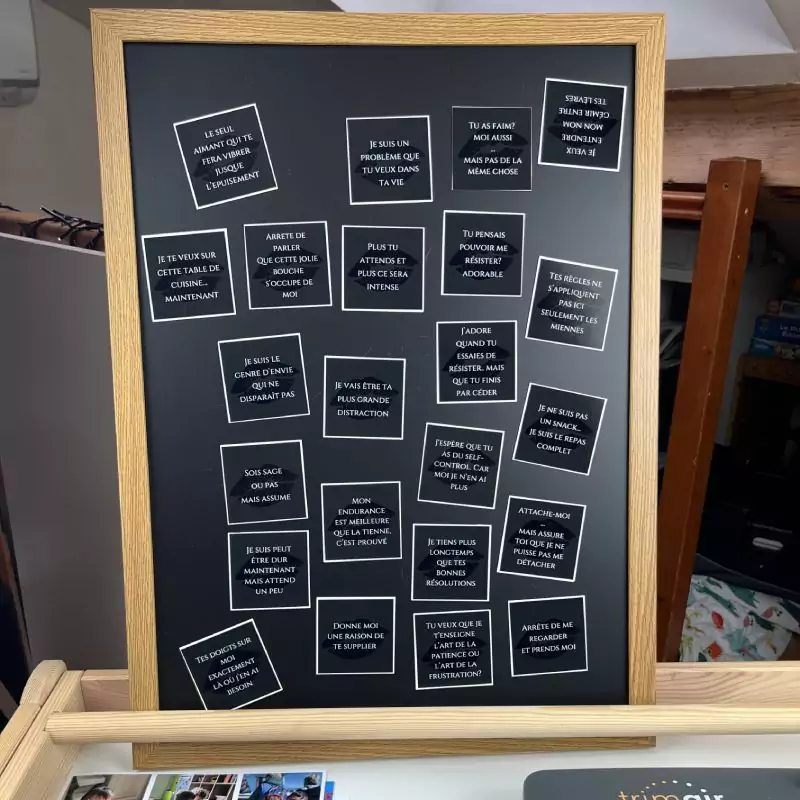 LE SEUL
AIMANT QUI TE
FERA VIBRER
JUSQUE
L'EPUISEMENT
JE SUIS UN
PROBLÈME QUE
TU VEUX DANS
TA VIE
TU AS FAIM?
MOI AUSSI
...
MAIS PAS DE LA
MÊME CHOSE
JE VEUX
ENTENDRE
MON NOM
GÉMIR ENTRE
TES LÈVRES
JE TE VEUX SUR
CETTE TABLE DE
CUISINE...
MAINTENANT
ARRETE DE
PARLER
QUE CETTE JOLIE
BOUCHE
S'OCCUPE DE
MOI
PLUS TU
ATTENDS ET
PLUS CE SERA
INTENSE
TU PENSAIS
POUVOIR ME
RÉSISTER?
ADORABLE
TES RÈGLES NE
S'APPLIQUENT
PAS ICI
SEULEMENT LES
MIENNES
JE SUIS LE
GENRE D'ENVIE
QUI NE
DISPARAÎT PAS
JE VAIS ÊTRE TA
PLUS GRANDE
DISTRACTION
J'ADORE
QUAND TU
ESSAIES DE
RÉSISTER. MAIS
QUE TU FINIS
PAR CÉDER
JE NE SUIS PAS
UN SNACK...
JE SUIS LE REPAS
COMPLET
SOIS SAGE
OU PAS
MAIS ASSUME
MON
ENDURANCE
EST MEILLEURE
QUE LA TIENNE,
C'EST PROUVÉ
J'ESPÈRE QUE TU
AS DU SELF-
CONTROL, CAR
MOI JE N'EN AI
PLUS
ATTACHE-MOI
...
MAIS ASSURE
TOI QUE JE NE
PUISSE PAS ME
DÉTACHER
JE SUIS PEUT
ÊTRE DUR
MAINTENANT
MAIS ATTEND
UN PEU
JE TIENS PLUS
LONGTEMPS
QUE TES
BONNES
RÉSOLUTIONS
TES DOIGTS SUR
MOI
EXACTEMENT
LÀ OÙ J'EN AI
BESOIN
DONNE MOI
UNE RAISON DE
TE SUPPLIER
TU VEUX QUE JE
T'ENSEIGNE
L'ART DE LA
PATIENCE OU
L'ART DE LA
FRUSTRATION?
ARRÊTE DE ME
REGARDER
ET PRENDS MOI
trimair